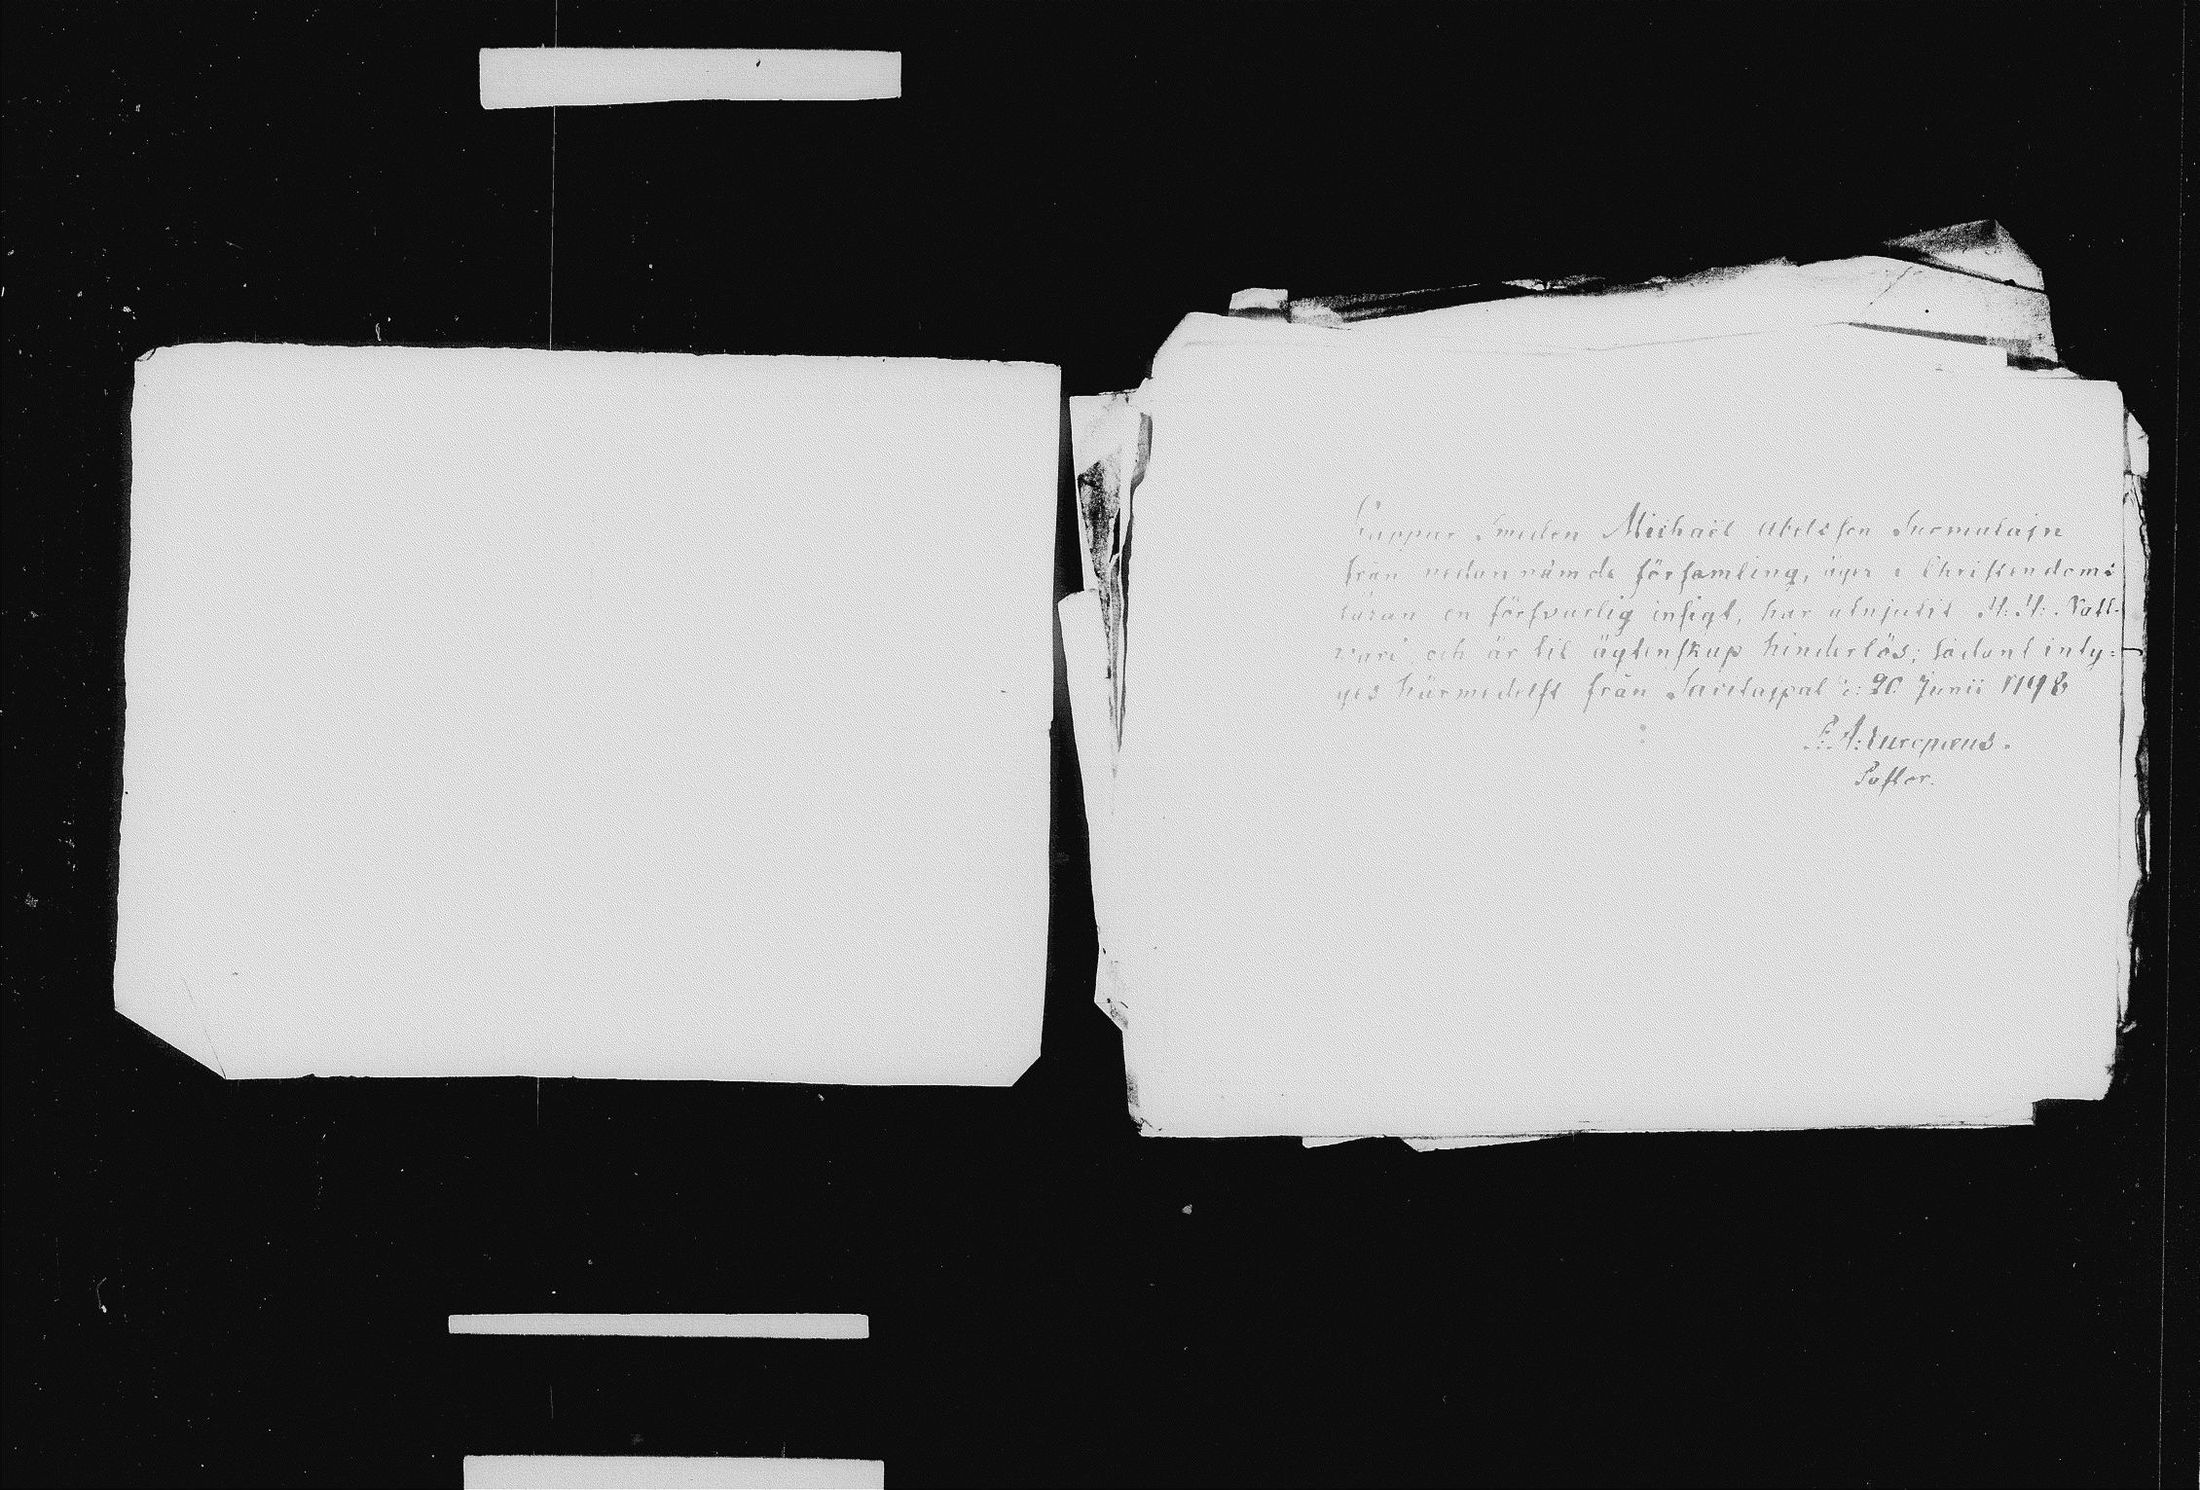 Kappar Smeden Michaël Abelsson Suomalain
från nedannämde församling, äger i Christendoms
läran en försvarlig insigt, har atnjutit H: H: Natt-
vard och är til ägtenskap hinderlös; sådant inty-
ges härmedelst från Savitaipal d: 20 Junii 1798
P. A: Europæus.
Pastor.